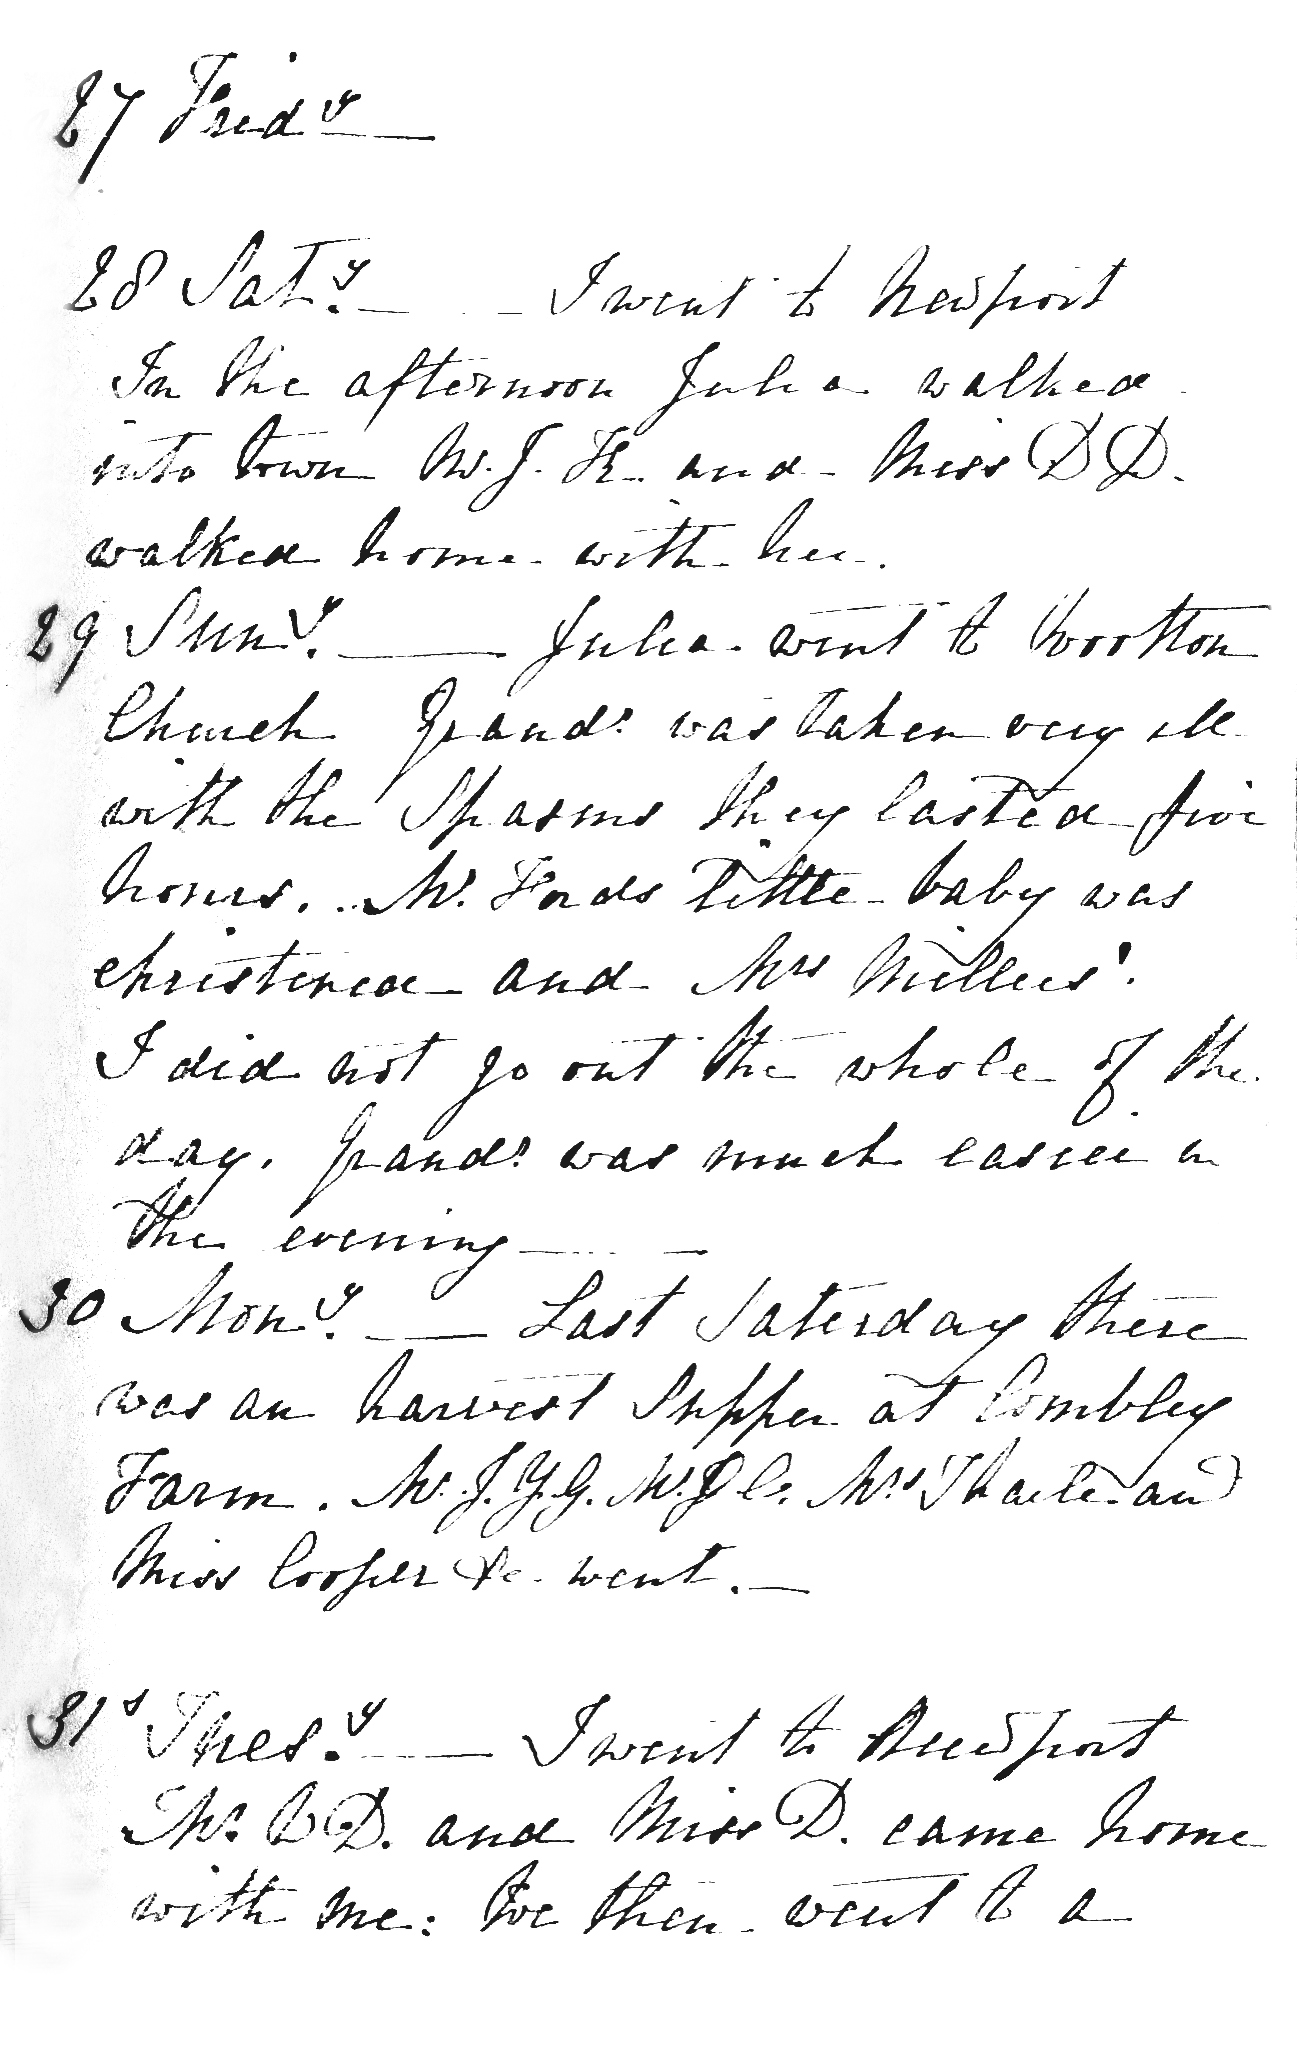 27 Frid.y —
28 Sat.y — I went to Newport
In the afternoon Julia walked
into town M. J. and Miss D D.
walked home with her.
29 Sun.y — Julia went to Wootton
Church Grand.a was taken very ill
with the Spasms they lasted five
hours. Mr. Fords little baby was
christened and Mrs Millers'.
I did not go out the whole of the
day. Grand.a was much easier in
the evening —
30 Mon.y — Last Saterday there
was an harvest Supper at Combley
Farm. Mr. J. Y. G. Mrs and
Miss Cooper &c. went. —
31s Tues.y — I went to Newport
Mr. D. and Miss D. came home
with me: We then went to a